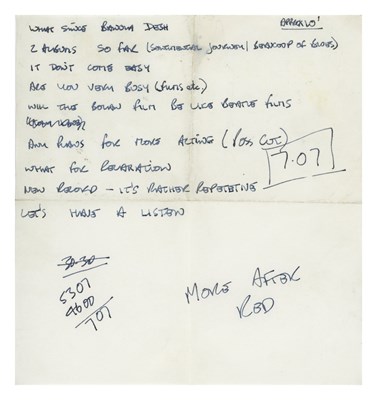 WHAT SINCE BANGLA DESH
APPROX 10'
2 ALBUMS SO FAR (SENTIMENTAL JOURNEY / BEAUCOOP OF BLUES)
IT DON'T COME EASY
ARE YOU VERY BUSY (FILMS etc)
WILL THE BOLAN FILM BE LIKE BEATLE FILMS
ANY PLANS FOR MORE ACTING (POSS CUT)
7.07
WHAT FOR RELAXATION
NEW RECORD - IT'S RATHER REPETETIVE
LET'S HAVE A LISTEN
30-30
5307
4600
707
MORE AFTER
RED